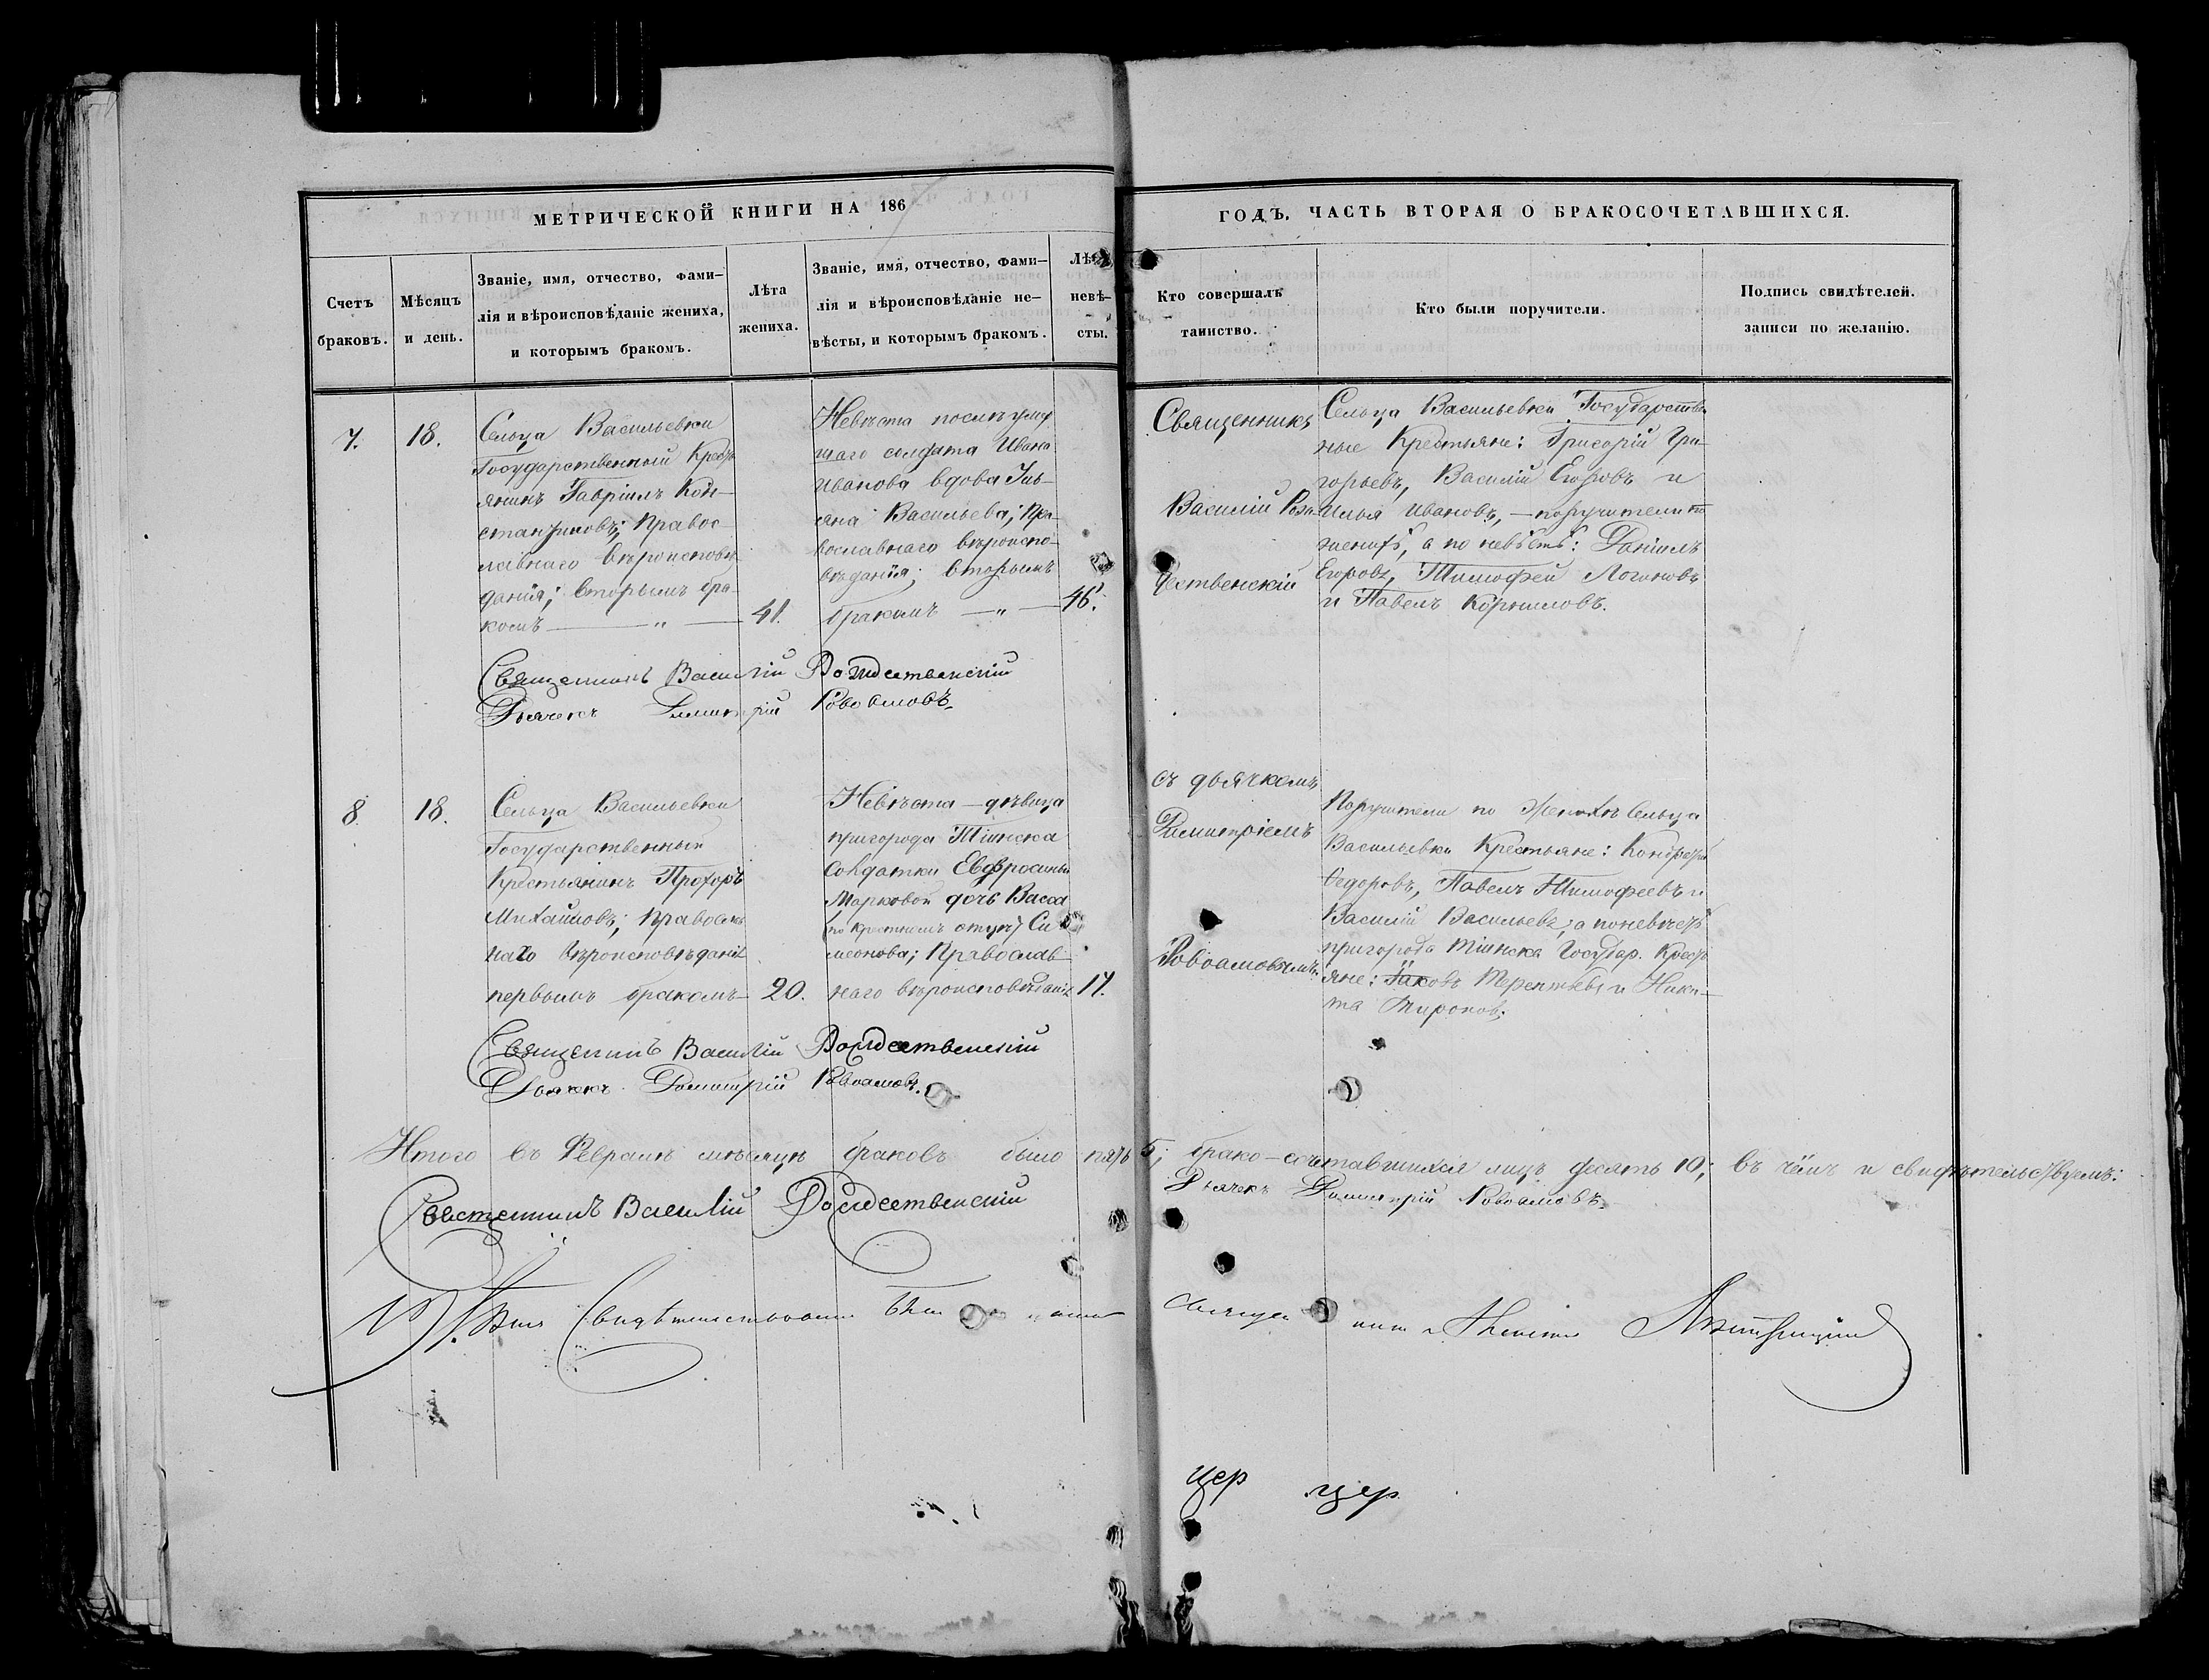 МЕТРИЧЕСКОЙ КНИГИ НА 186
ГОДЪ, ЧАСТЬ ВТОРАЯ О БРАКОСОЧЕТАВШИХСЯ.
Счетъ
браковъ.
Мѣсяцъ
и день.
Званіе, имя, отчество, фами-
лія и вѣроисповѣданіе жениха,
и которымъ бракомъ.
Лѣта
жениха.
Званіе, имя, отчество, фами-
лія и вѣроисповѣданіе не-
вѣсты, и которымъ бракомъ.
невѣ-
сты.
Кто совершалъ
таинство.
Кто были поручители.
Подпись свидѣтелей.
записи по желанію.
7.
18.
Сельца Васильевки
Государственный Крест
янинъ Гавріилъ Кон-
стантиновъ; Правос-
лавнаго вѣроисповѣ
данія; вторымъ бра-
комъ — „ —
41.
Невѣста послѣ умер
шаго солдата Ивана
Иванова вдова Іулі-
яна Васильева; Пра-
вославнаго вѣроиспо-
вѣданія; вторымъ
бракомъ — „ —
46.
Священникъ
Василій Рож-
дественскій
Сельца Васильевки Государствен
ные Крестьяне: Григорій Гри-
горьевъ, Василій Егоровъ и
Илья Ивановъ, — поручители по
женихѣ, а по невѣстѣ: Даніилъ
Егоровъ, Тимофей Логиновъ
и Павелъ Корниловъ.
Священникъ Василій Рождественскій
Дьячекъ Димитрій Ровоамовъ.
8.
18.
Сельца Васильевки
Государственный
Крестьянинъ Прохоръ
Михайловъ; Правосла
наго вѣроисповѣданія
первымъ бракомъ
20.
Невѣста — дѣвица
пригорода Тіинска
Солдатки Евфросиньи
Марковой дочь Васса
(по крестномъ отцѣ) Си
меонова; Православ
наго вѣроисповѣданія
17.
съ дьячкомъ
Димитріемъ
Ровоамовымъ.
Поручители по Женихѣ Сельца
Васильевки Крестьяне:
Ѳедоровъ, Павелъ Тимофеевъ и
Василій Васильевъ, а по невѣстѣ
пригорода Тіинска Государ. Крест
яне: Іаковъ Терентьевъ и Ники-
та Мироновъ.
Священникъ Василій Рождественскій
Дьячекъ Димитрій Ровоамовъ.
Итого въ Февралѣ мѣсяцѣ браковъ было пять 5; брако-сочетавшихся лицъ десять 10; въ чемъ и свидѣтельствуемъ:
Священникъ Василій Рождественскій
Дьячекъ Димитрій Ровоамовъ.
Свидѣтельствовалъ
цер цер